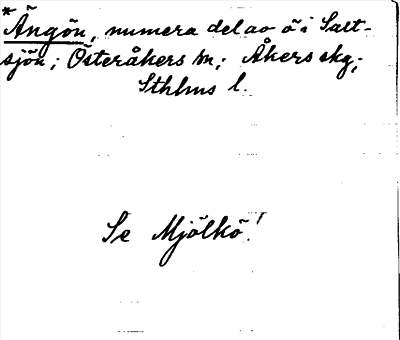 *
Ängön, numera del av ö i Salt-
sjön; Österåkers sn; Åkers skg;
Sthlms l.
Se Mjölkö!